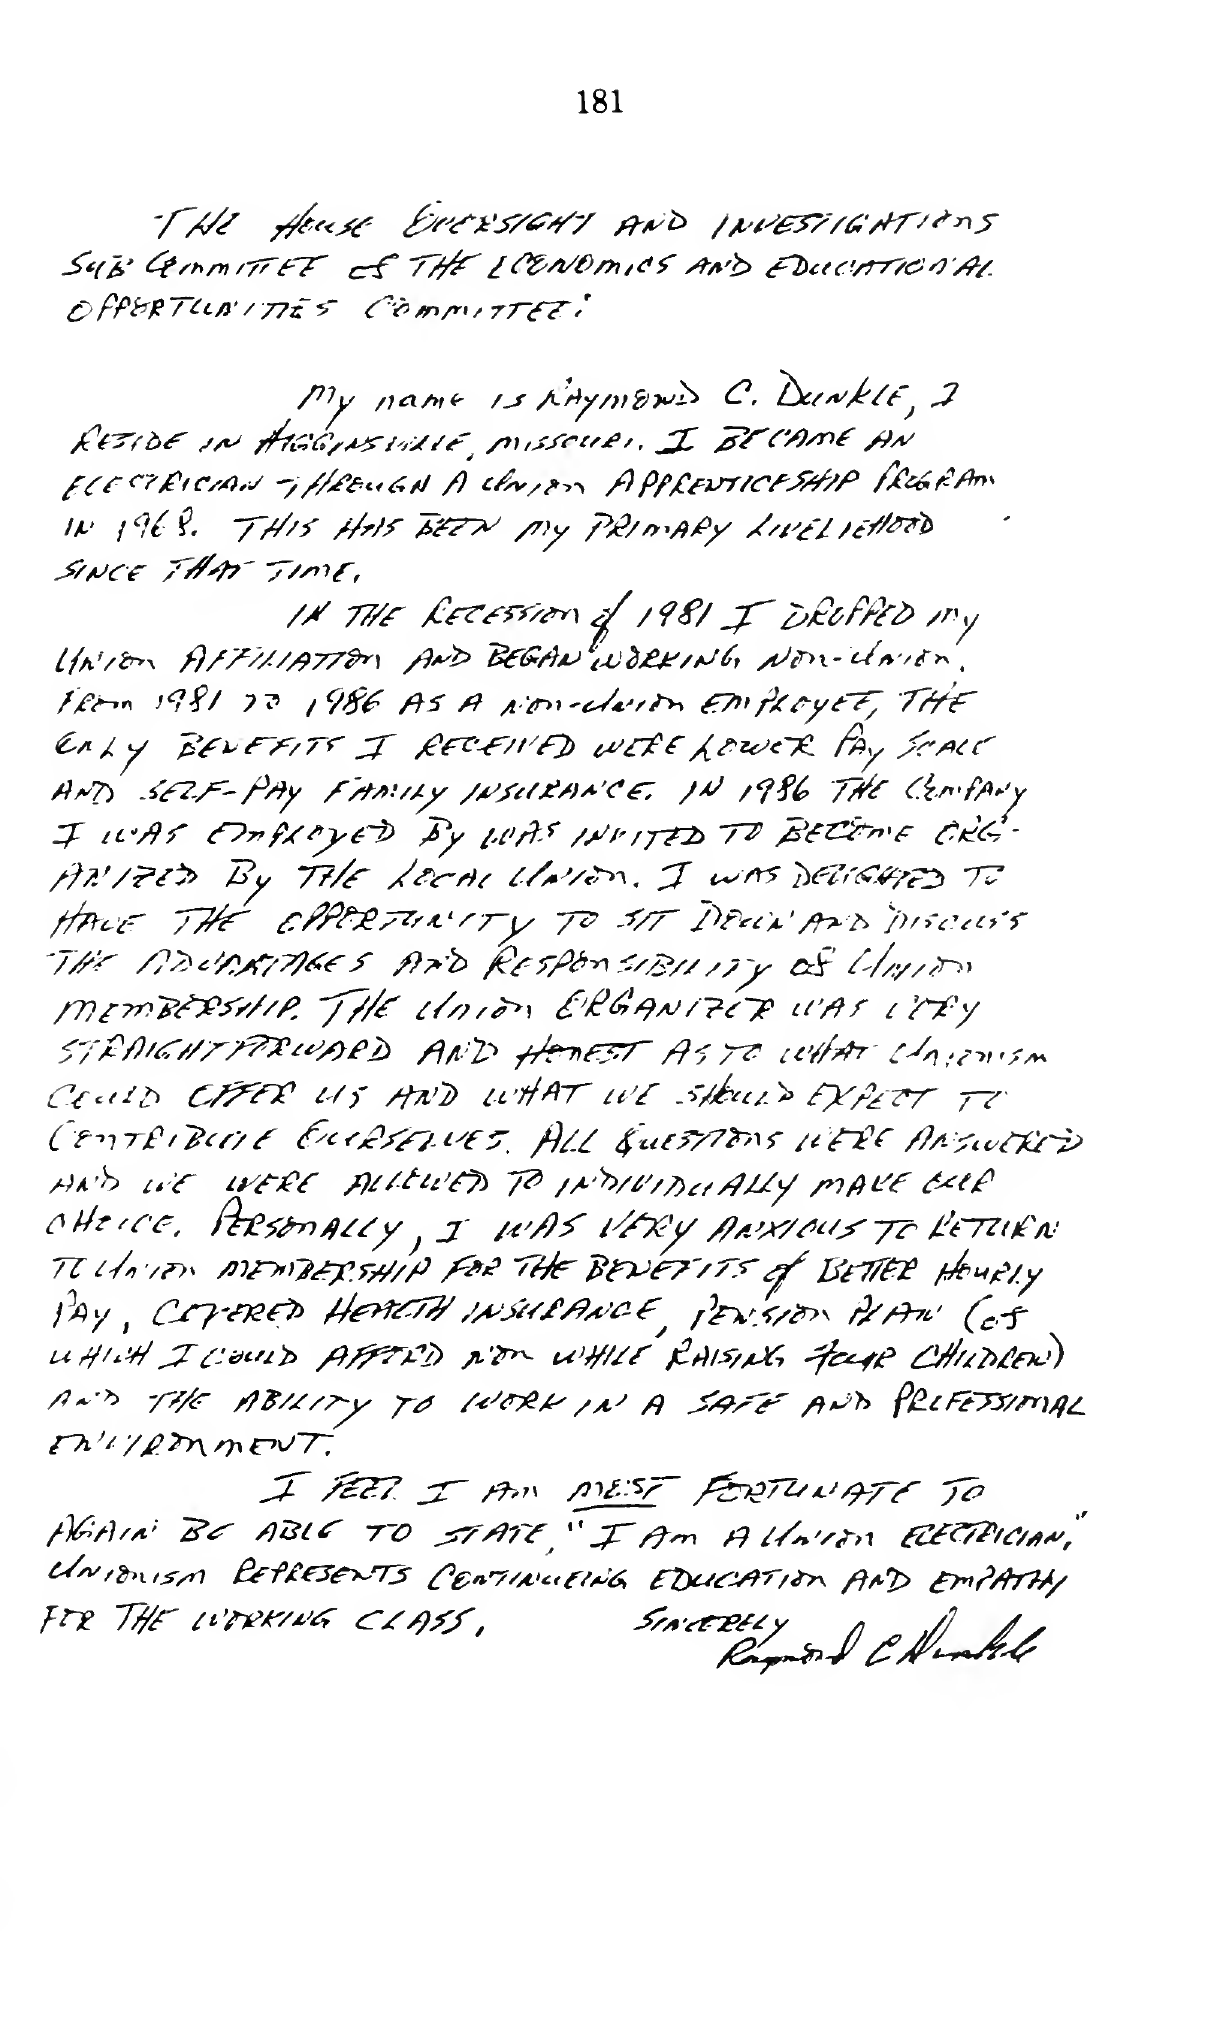 181
THE HOUSE OVERSIGHT AND INVESTIGATIONS
SUB COMMITTEE of THE ECONOMICS AND EDUCATIONAL
OPPORTUNITIES COMMITTEE:
My name is RAYMOND C. DUNKLE, I
RESIDE IN HIGGINSVILLE, MISSOURI. I BECAME AN
ELECTRICIAN THROUGH A UNION APPRENTICESHIP PROGRAM
IN 1968. THIS HAS BEEN MY PRIMARY LIVELIEHOOD
SINCE THAT TIME.
IN THE RECESSION of 1981 I DROPPED MY
UNION AFFILIATION AND BEGAN WORKING NON-UNION.
FROM 1981 TO 1986 AS A NON-UNION EMPLOYEE, THE
ONLY BENEFITS I RECEIVED WERE LOWER PAY SCALE
AND SELF-PAY FAMILY INSURANCE. IN 1986 THE COMPANY
I WAS EMPLOYED BY WAS INVITED TO BECOME ORG-
ANIZED BY THE LOCAL UNION. I WAS DELIGHTED TO
HAVE THE OPPORTUNITY TO SIT DOWN AND DISCUSS
THE ADVANTAGES AND RESPONSIBILITY of UNION
MEMBERSHIP. THE UNION ORGANIZER WAS VERY
STRAIGHTFORWARD AND HONEST AS TO WHAT UNIONISM
COULD OFFER US AND WHAT WE SHOULD EXPECT TO
CONTRIBUTE OURSELVES. ALL QUESTIONS WERE ANSWERED
AND WE WERE ALLOWED TO INDIVIDUALLY MAKE OUR
CHOICE. PERSONALLY, I WAS VERY ANXIOUS TO RETURN
TO UNION MEMBERSHIP FOR THE BENEFITS of BETTER HOURLY
PAY, COVERED HEALTH INSURANCE, PENSION PLAN (of
WHICH I COULD AFFORD NON WHILE RAISING FOUR CHILDREN)
AND THE ABILITY TO WORK IN A SAFE AND PROFESSIONAL
ENVIRONMENT.
I FEEL I AM MOST FORTUNATE TO
AGAIN BE ABLE TO STATE, "I AM A UNION ELECTRICIAN."
UNIONISM REPRESENTS CONTINUEING EDUCATION AND EMPATHY
FOR THE WORKING CLASS.
SINCERELY
Raymond C Dunkle